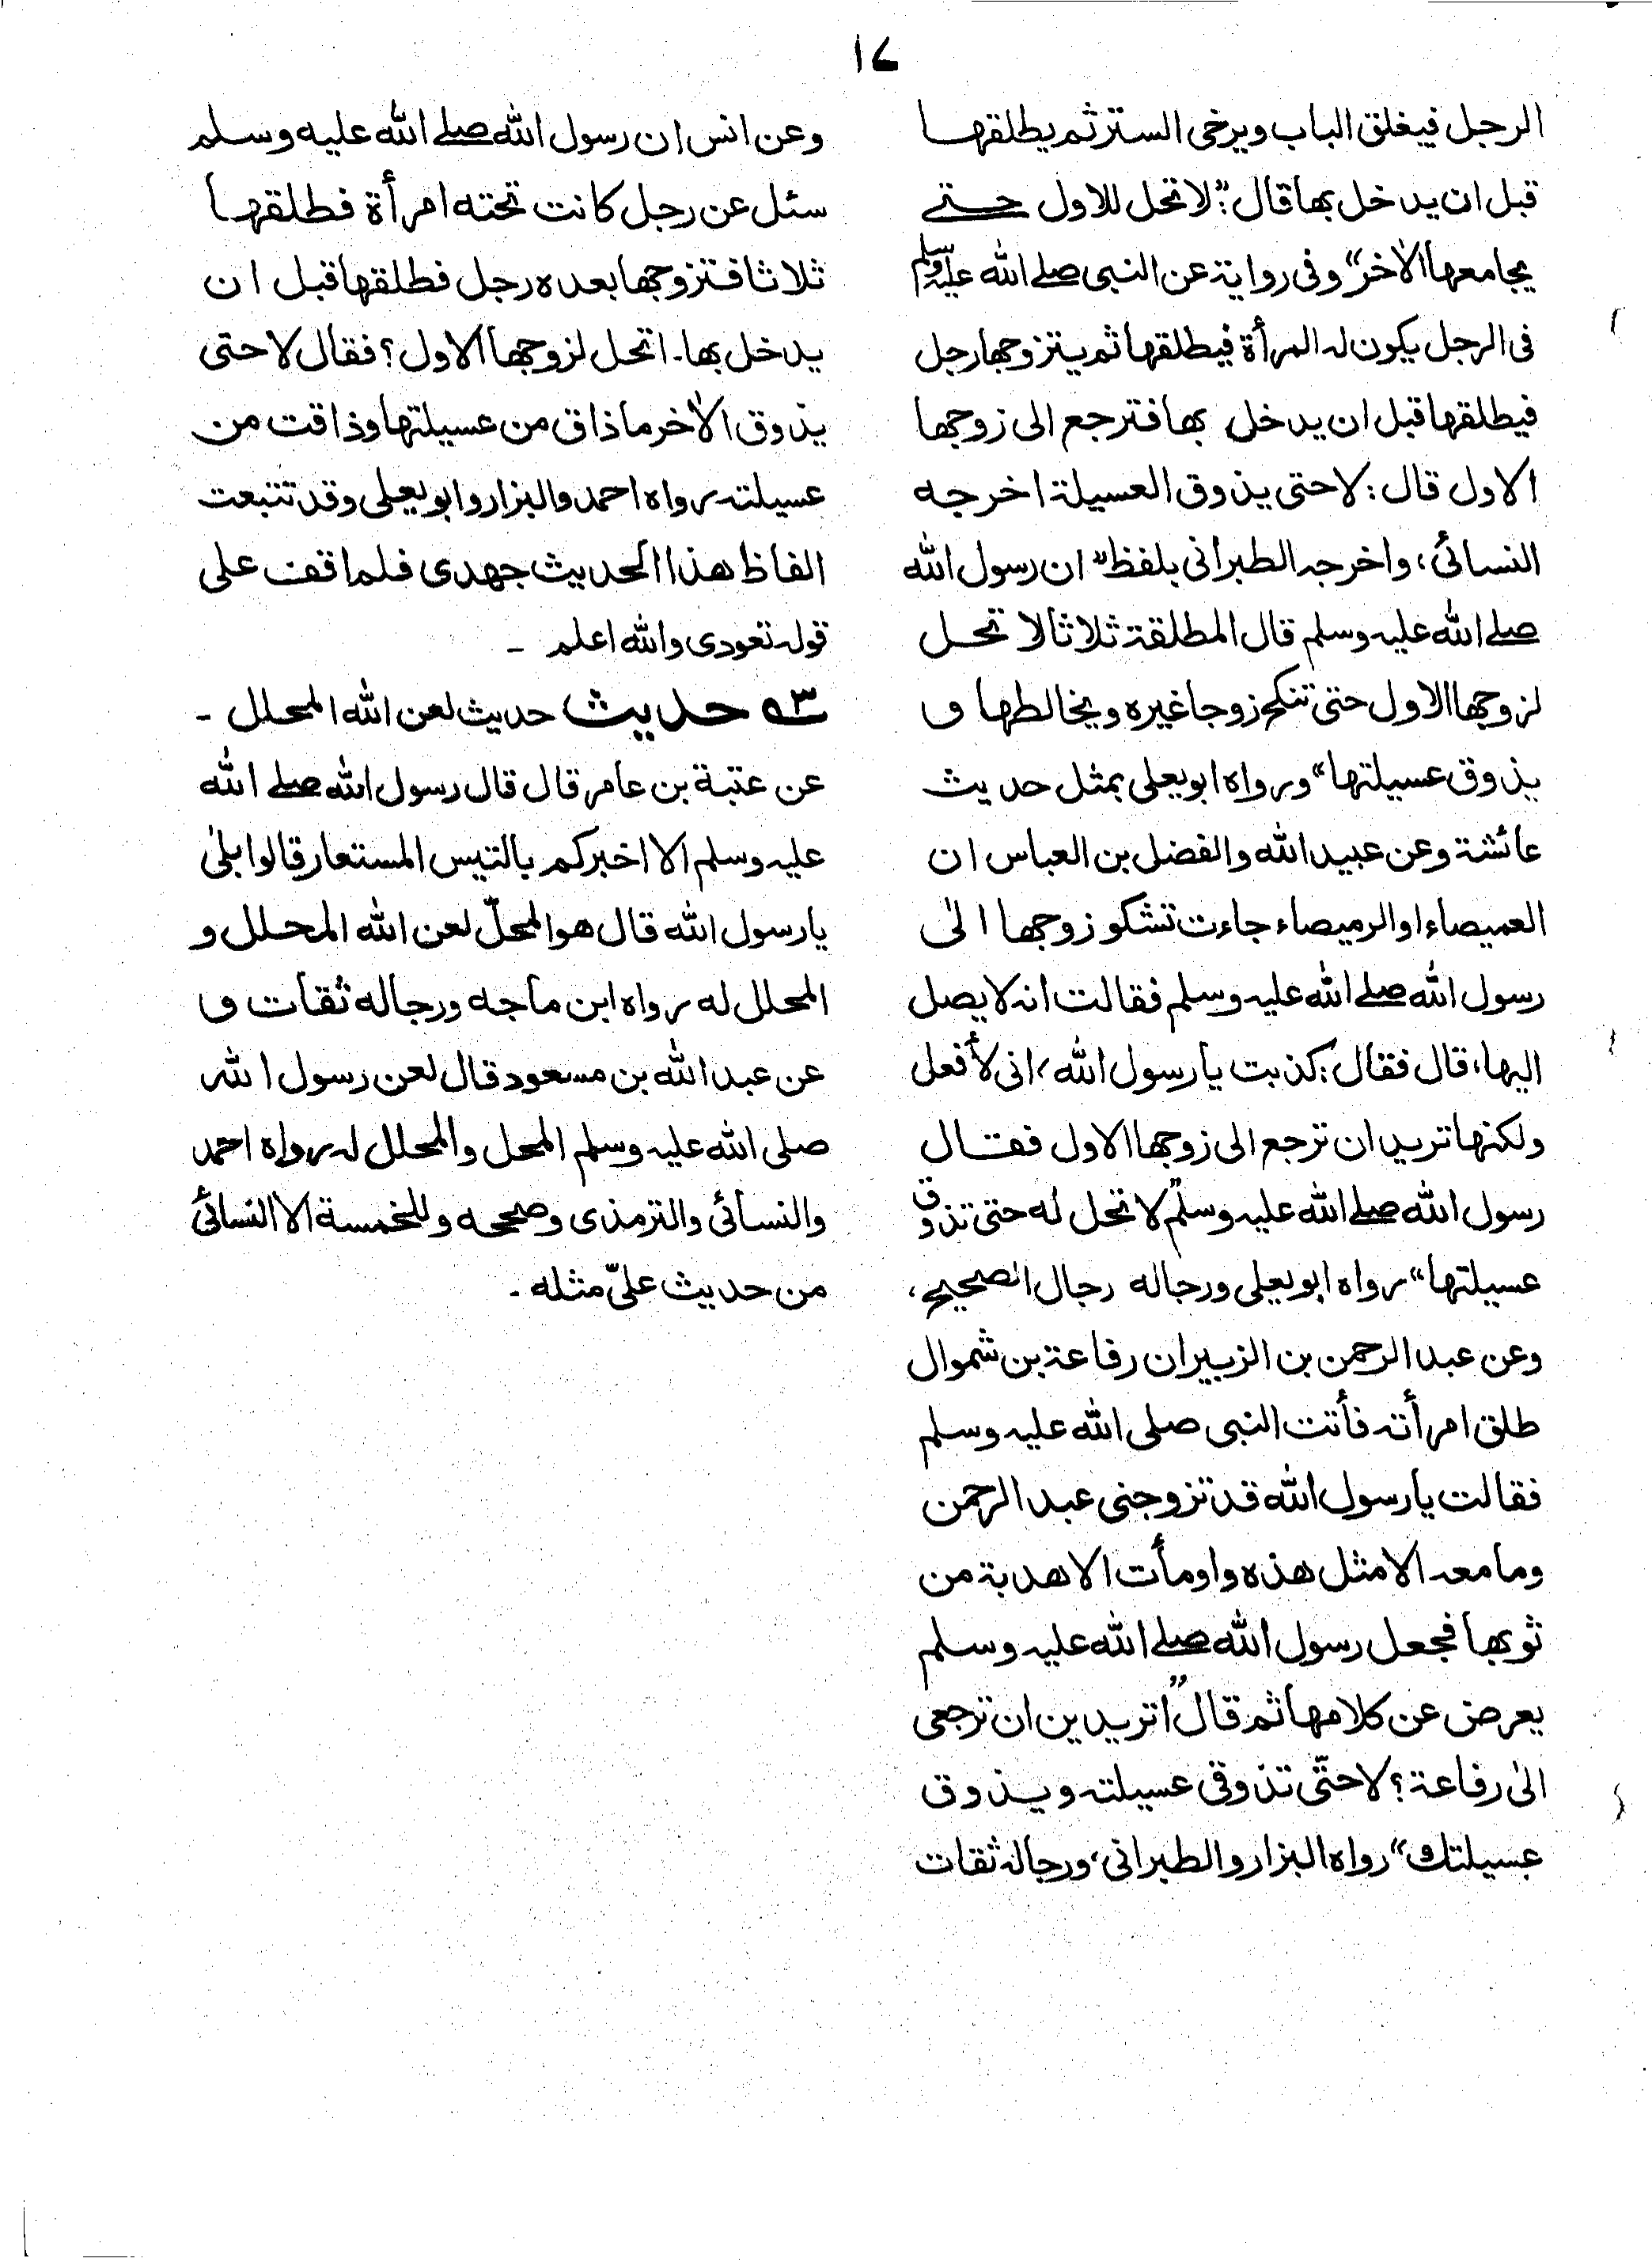 ۱۷
الرجل فيغلق الباب ويرخى الستر ثم يطلقها
قبل ان يدخل بها قال: "لا تحل للاول حتے
يجامعها الآخر" وفى رواية عن النبى صلے الله عليہ وسلم
فى الرجل يكون لہ المرأة فيطلقها ثم يتزوجها رجل
فيطلقها قبل ان يدخل بها فترجع الى زوجها
الاول قال: لا حتى يذوق العسيلة اخرجه
النسائی، واخرجہ الطبرانى بلفظ "ان رسول الله
صلے الله عليہ وسلم قال المطلقة ثلاثا لا تحل
لزوجها الاول حتى تنكح زوجا غيره ويخالطها و
يذوق عسيلتها" ورواه ابو يعلى بمثل حديث
عائشة وعن عبيد الله والفضل بن العباس ان
العميصاء او الرميصاء جاءت تشكو زوجها الىٰ
رسول الله صلے الله عليہ وسلم فقالت انہ لا يصل
اليها، قال فقال: كذبت يا رسول الله، انى لأفعل
ولكنها تريد ان ترجع الى زوجها الاول فقال
رسول الله صلے الله عليہ وسلم "لا تحل له حتى تذوق
عسيلتها" رواه ابو يعلى ورجاله رجال الصحيح،
وعن عبد الرحمن بن الزبير ان رفاعة بن شموال
طلق امرأتہ فأتت النبى صلى الله عليہ وسلم
فقالت يا رسول الله قد تزوجنى عبد الرحمن
وما معہ الا مثل هذه واومأت الا هدبة من
ثوبها فجعل رسول الله صلے الله عليہ وسلم
يعرض عن كلامها ثم قال "اتريدين ان ترجعى
الىٰ رفاعة؟ لا حتّى تذوقى عسيلتہ ويذوق
عسيلتك" رواه البزار والطبرانى، ورجالہ ثقات
وعن انس ان رسول الله صلے الله عليه وسلم
سئل عن رجل كانت تحته امرأة فطلقها
ثلاثا فتزوجها بعده رجل فطلقها قبل ان
يدخل بها۔ اتحل لزوجها الاول؟ فقال لا حتى
يذوق الآخر ما ذاق من عسيلتها وذاقت من
عسيلتہ رواه احمد والبزار وابو يعلى وقد تتبعت
الفاظ هذا الحديث جهدى فلم اقف على
قولہ تعودى والله اعلم ۔
۳ حديث حديث لعن الله المحلل ۔
عن عتبة بن عامر قال قال رسول الله صلے الله
عليہ وسلم الا اخبركم بالتيس المستعار قالوا بلىٰ
يا رسول الله قال هو المحلّ لعن الله المحلل و
المحلل له رواه ابن ماجه ورجاله ثقات و
عن عبد الله بن مسعود قال لعن رسول الله
صلى الله عليہ وسلم المحل والمحلل لہ رواه احمد
والنسائى والترمذى وصححه وللخمسة الا النسائی
من حديث علىّ مثله ۔